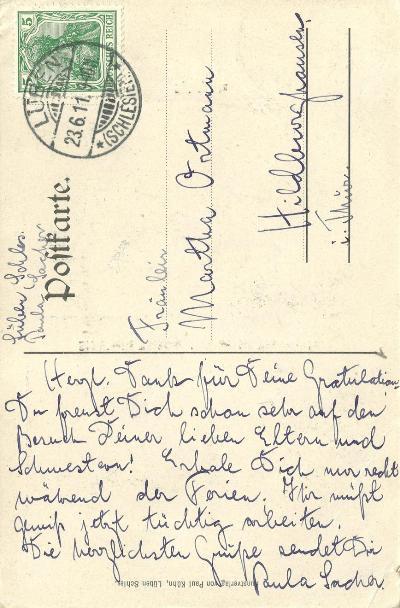 5
DEUTSCHES REICH
LÜBEN
23.6.11.
*(SCHLESIEN)*
Postkarte.
Lüben Schles.
Paula Sacher
Fräulein
Martha Ortmann
Hildburghausen
i. Thür.
Herzl. Dank für Deine Gratulation.
Du freust Dich schon sehr auf den
Besuch Deiner lieben Eltern und
Schwestern! Erhole Dich nur recht
während der Ferien. Ihr müßt
gewiß jetzt tüchtig arbeiten.
Die herzlichsten Grüße sendet Dir
Paula Sacher.
Kunstverlag von Paul Kühn, Lüben Schles.